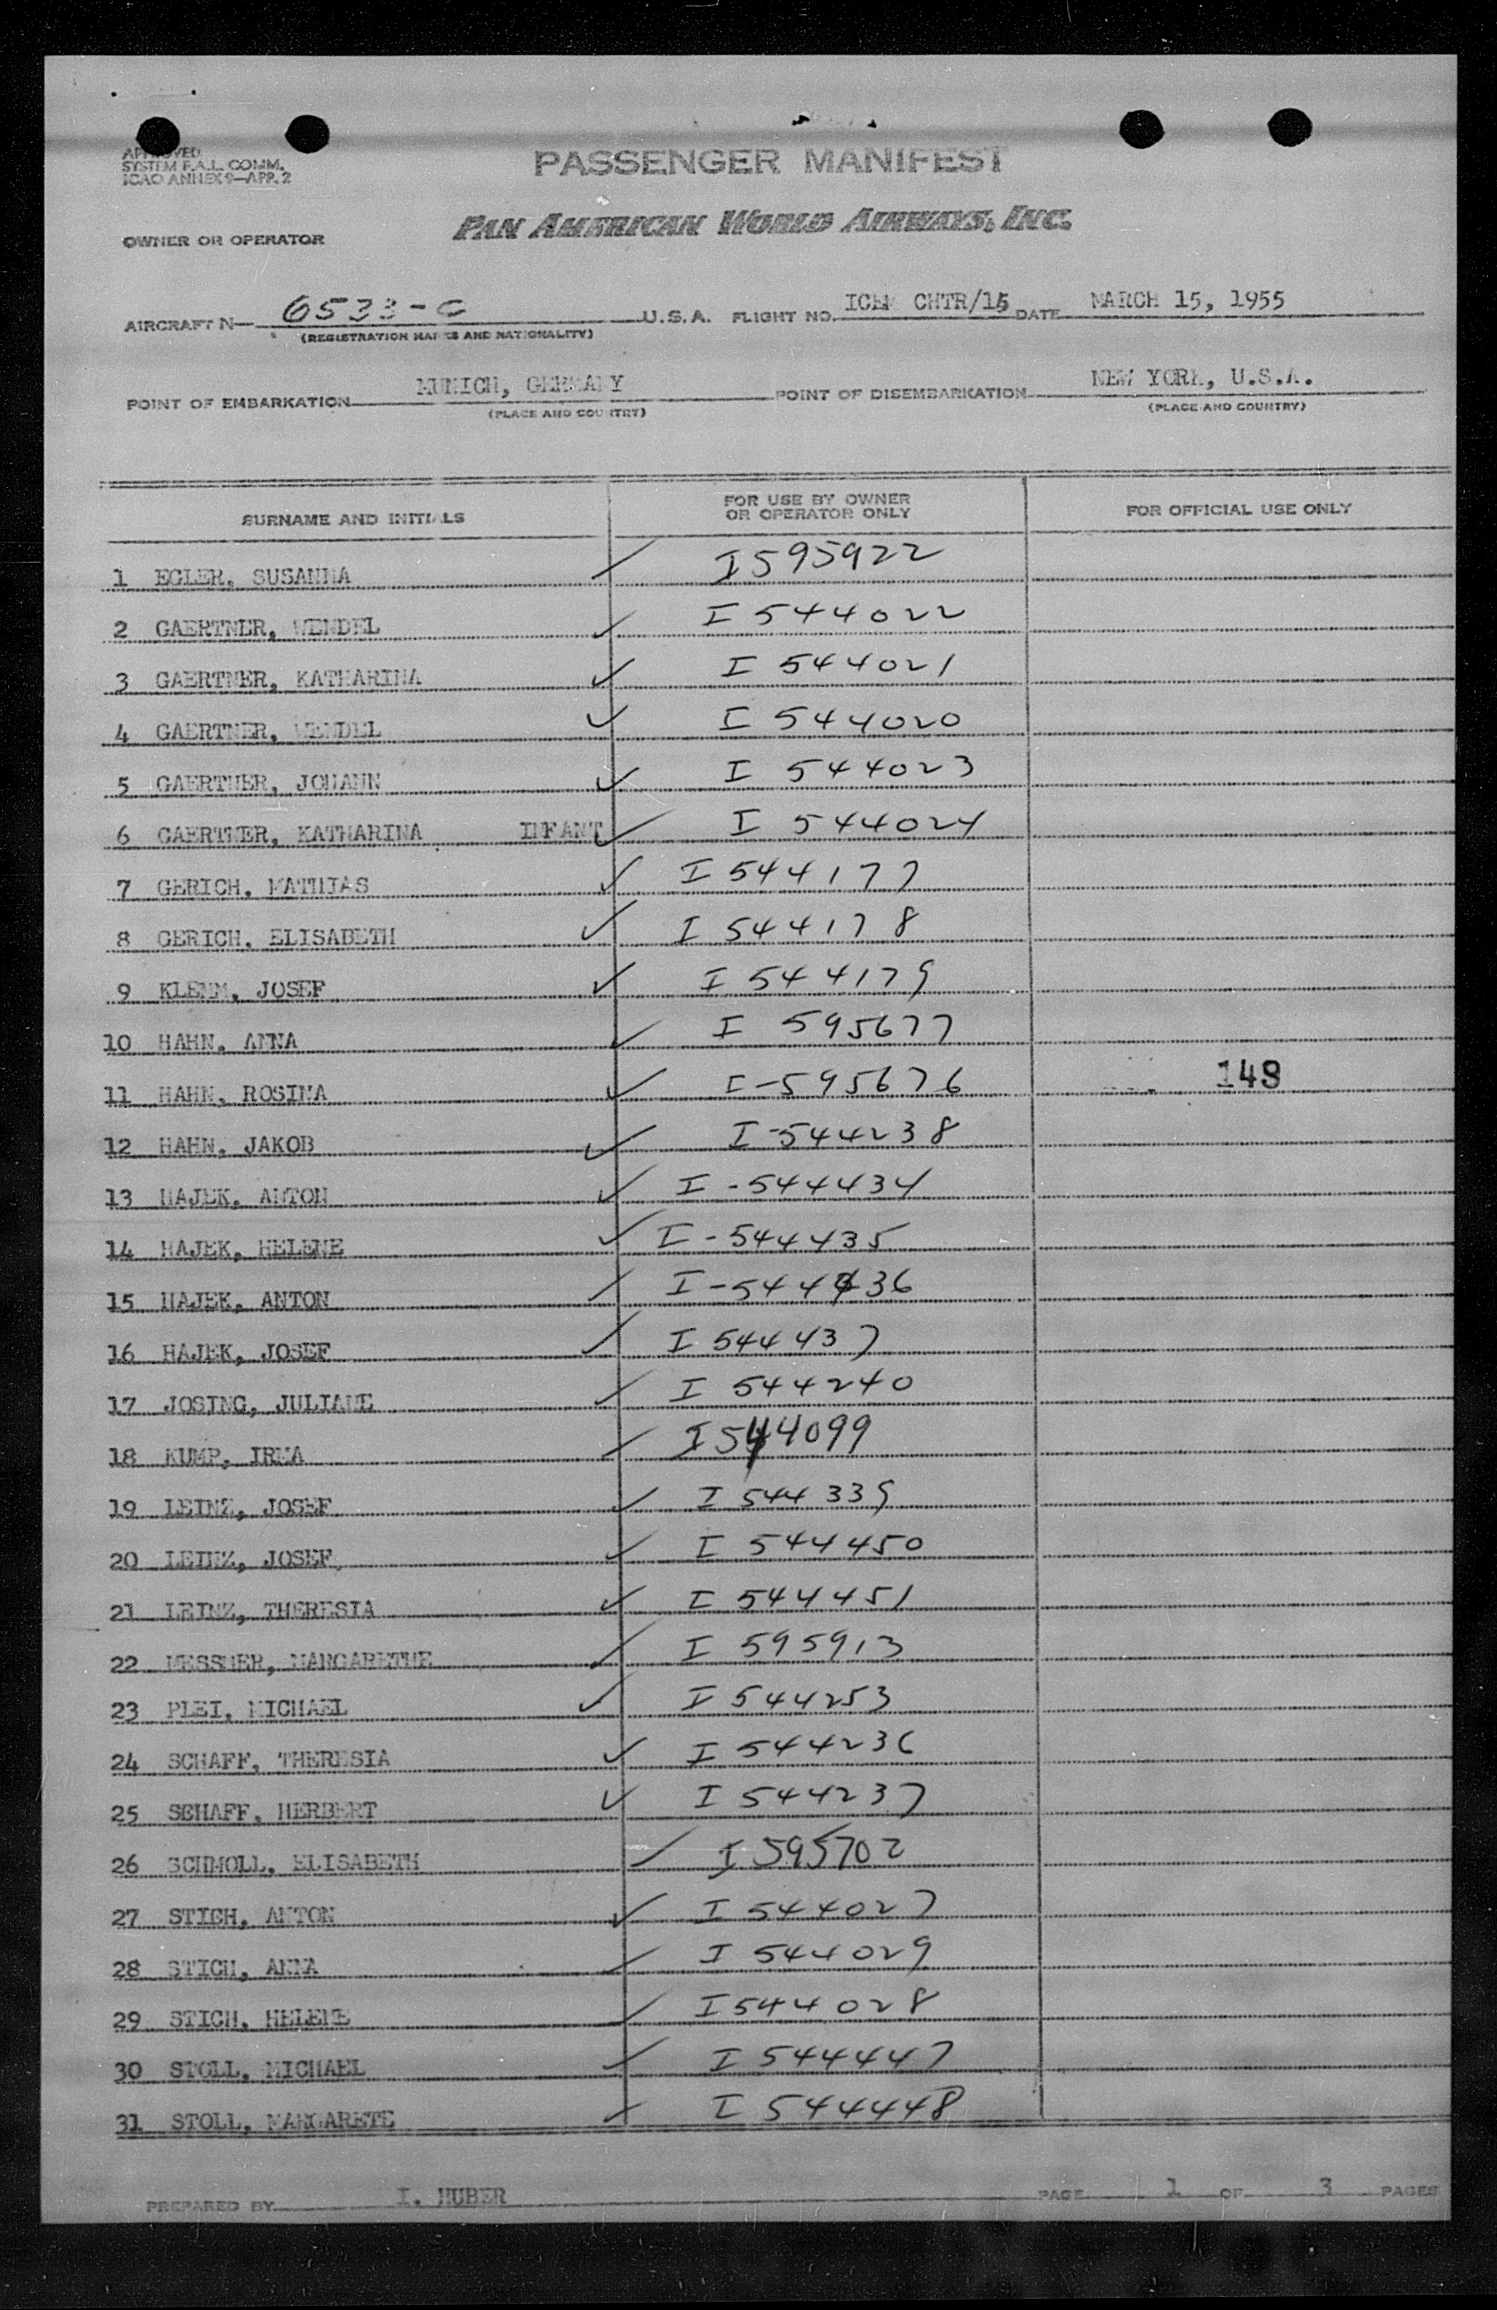 APPROVED
SYSTEM F.A.L. COMM.
ICAO ANNEX 9—APP. 2
PASSENGER MANIFEST
PAN AMERICAN WORLD AIRWAYS, INC.
OWNER OR OPERATOR
AIRCRAFT N— 6533-C U.S.A. FLIGHT NO. ICEM CHTR/15 DATE MARCH 15, 1955
(REGISTRATION MARKS AND NATIONALITY)
POINT OF EMBARKATION MUNICH, GERMANY POINT OF DISEMBARKATION NEW YORK, U.S.A.
(PLACE AND COUNTRY) (PLACE AND COUNTRY)
SURNAME AND INITIALS FOR USE BY OWNER OR OPERATOR ONLY FOR OFFICIAL USE ONLY
1 EGLER, SUSANNA ✓ I 595922
2 GAERTNER, WENDEL ✓ I 544022
3 GAERTNER, KATHARINA ✓ I 544021
4 GAERTNER, WENDEL ✓ I 544020
5 GAERTNER, JOHANN ✓ I 544023
6 GAERTNER, KATHARINA INFANT ✓ I 544024
7 GERICH, MATHIAS ✓ I 544177
8 GERICH, ELISABETH ✓ I 544178
9 KLEMM, JOSEF ✓ I 544179
10 HAHN, ANNA ✓ I 595677
11 HAHN, ROSINA ✓ I-595676 148
12 HAHN, JAKOB ✓ I-544238
13 HAJEK, ANTON ✓ I-544434
14 HAJEK, HELENE ✓ I-544435
15 HAJEK, ANTON ✓ I-544436
16 HAJEK, JOSEF ✓ I 544437
17 JOSING, JULIANE ✓ I 544240
18 KUMP, IRMA ✓ I 544099
19 LEINZ, JOSEF ✓ I 544339
20 LEINZ, JOSEF ✓ I 544450
21 LEINZ, THERESIA ✓ I 544451
22 MESSMER, MARGARETHE ✓ I 595913
23 PLEI, MICHAEL ✓ I 544253
24 SCHAFF, THERESIA ✓ I 544236
25 SCHAFF, HERBERT ✓ I 544237
26 SCHMOLL, ELISABETH ✓ I 595702
27 STICH, ANTON ✓ I 544027
28 STICH, ANNA ✓ I 544029
29 STICH, HELENE ✓ I 544028
30 STOLL, MICHAEL ✓ I 544447
31 STOLL, MARGARETE ✓ I 544448
PREPARED BY I. HUBER PAGE 1 OF 3 PAGES